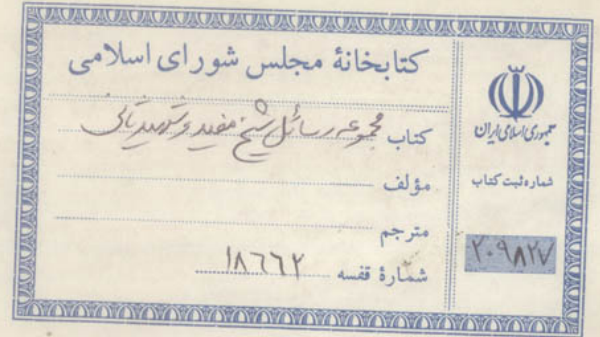 کتابخانهٔ مجلس شورای اسلامی
کتاب مجموعه رسائل شیخ مفید و شهید ثانی
مؤلف
مترجم
شمارهٔ قفسه ۱۸۶۶۲
جمهوری اسلامی ایران
شماره ثبت کتاب
۲۰۹۸۲۷